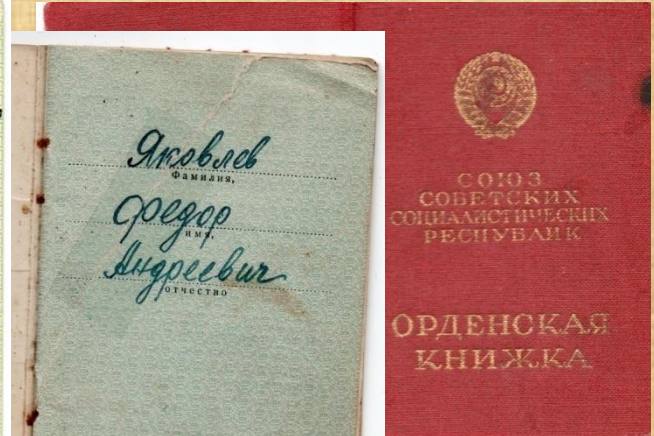 Яковлев
Фамилия,
Федор
имя,
Андреевич
отчество
СОЮЗ
СОВЕТСКИХ
СОЦИАЛИСТИЧЕСКИХ
РЕСПУБЛИК
ОРДЕНСКАЯ
КНИЖКА